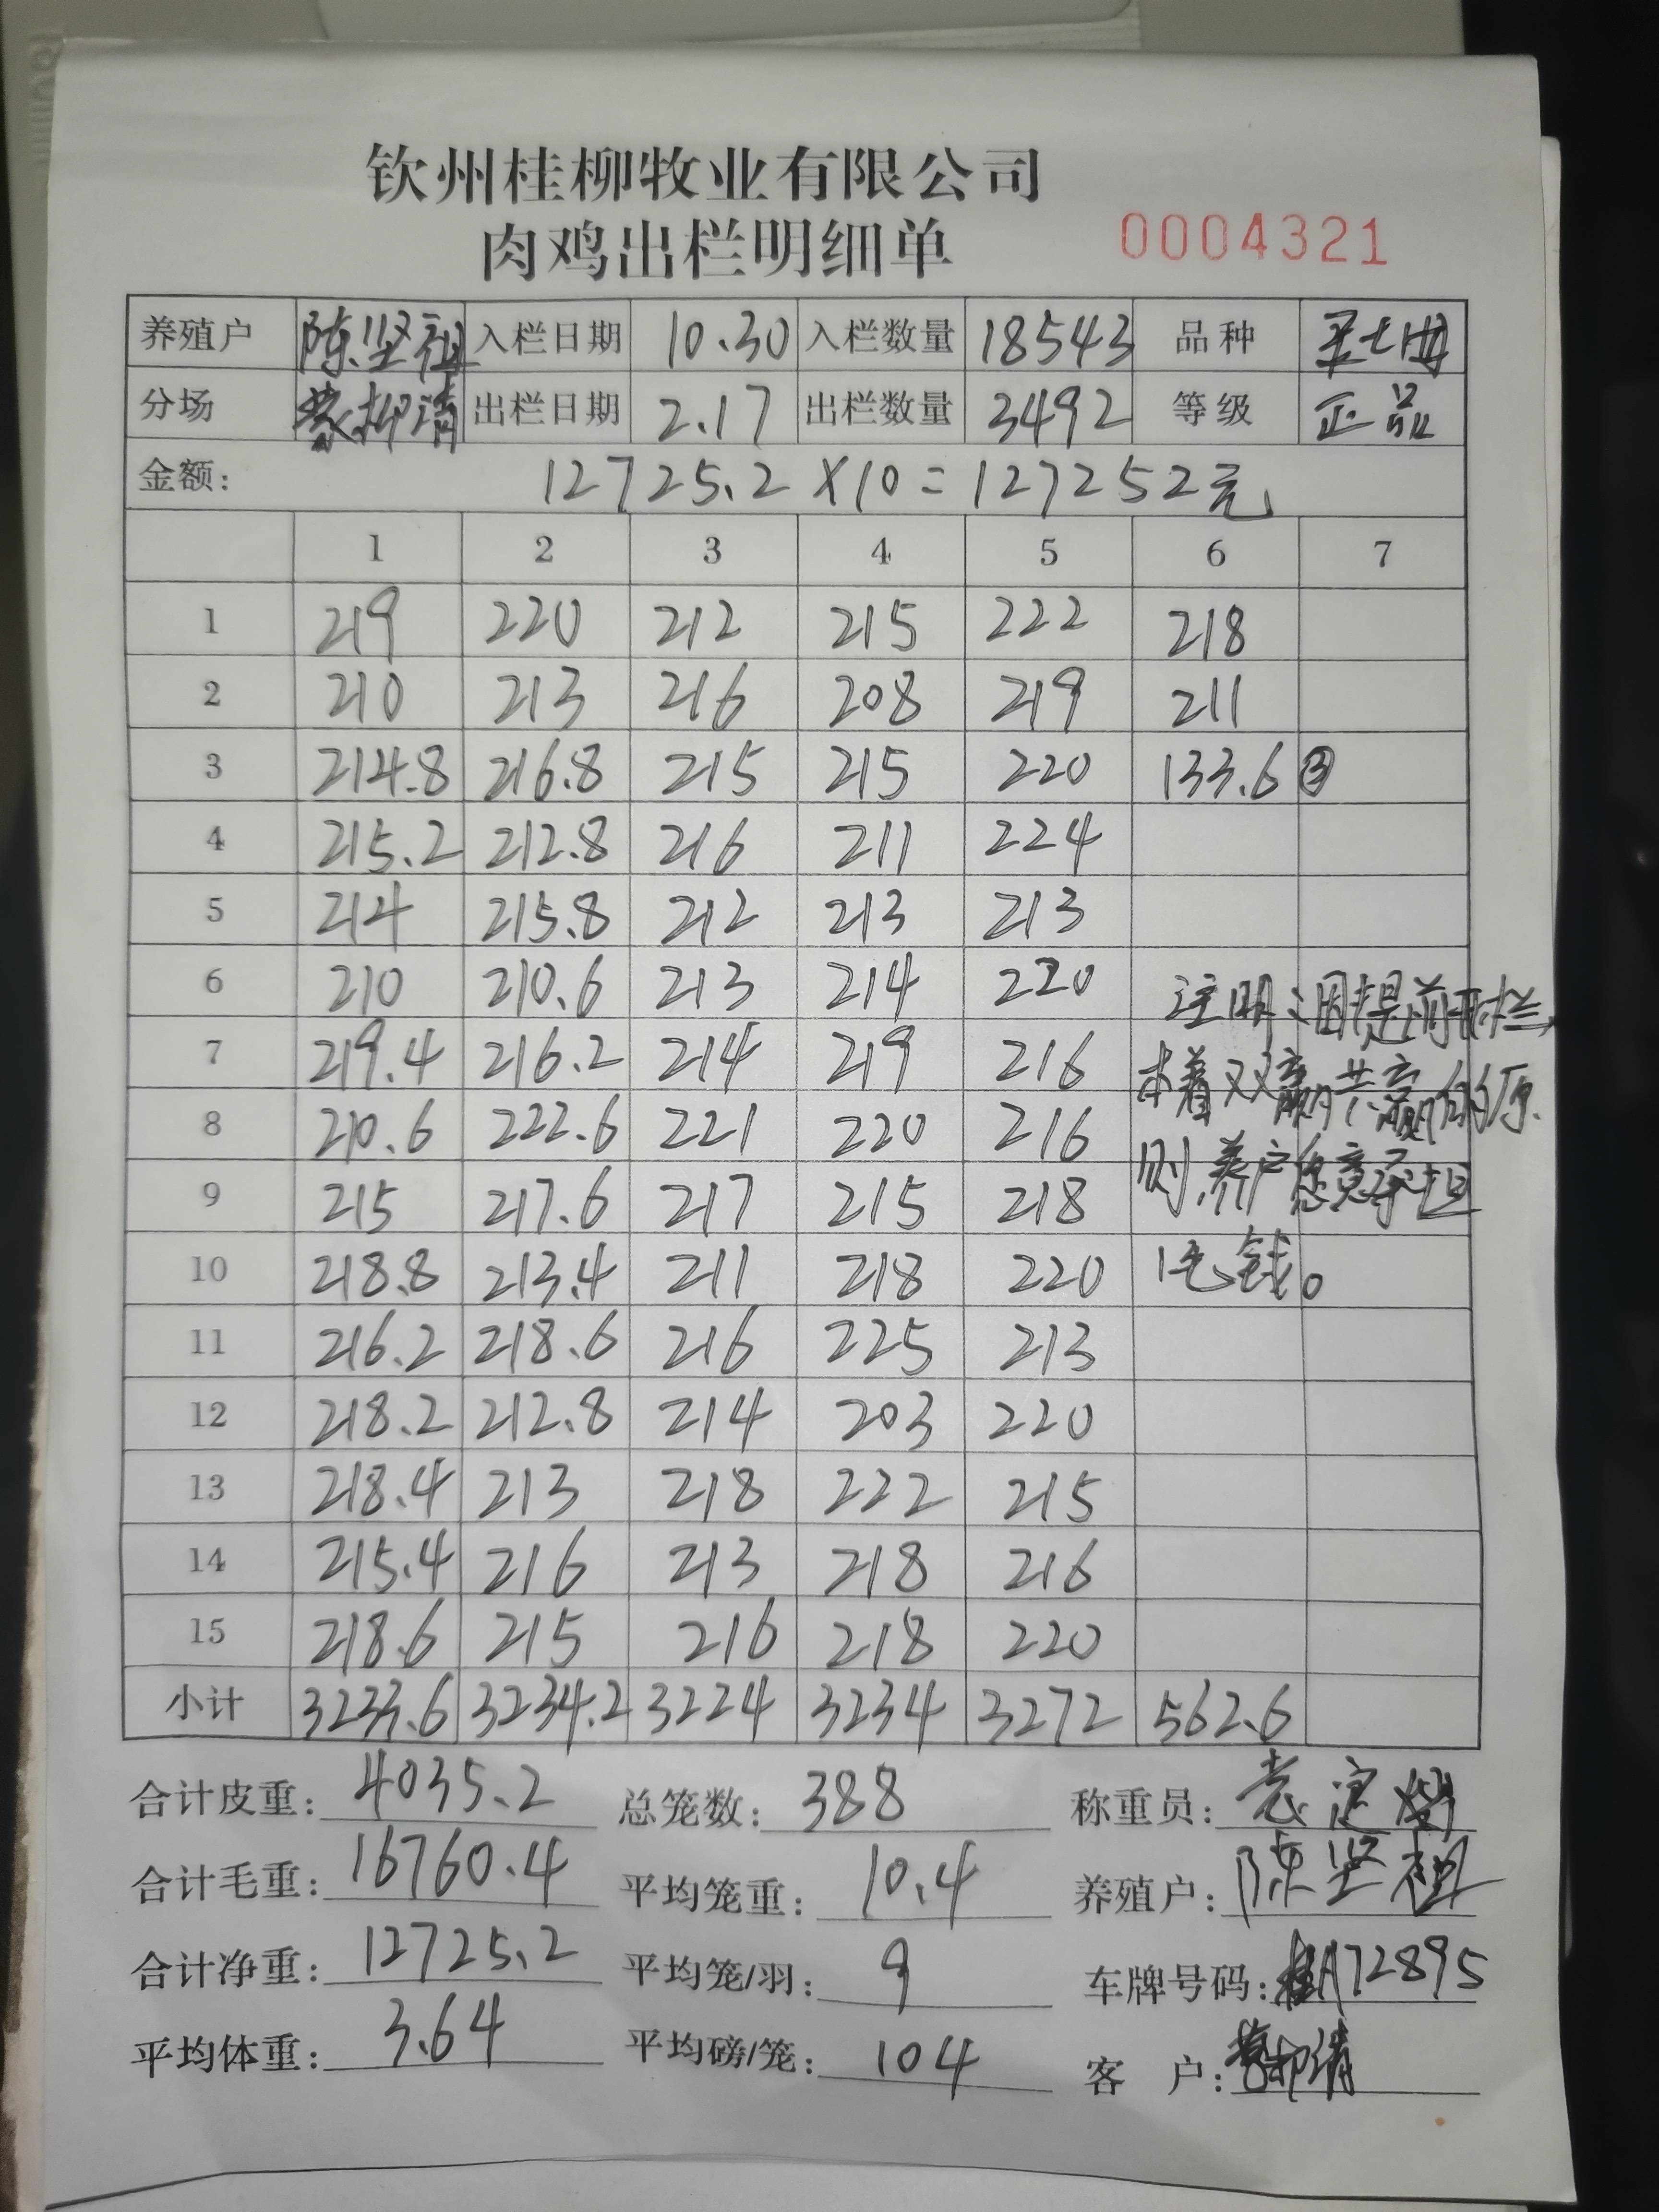 钦州桂柳牧业有限公司
肉鸡出栏明细单 0004321
养殖户 陈坚祖 入栏日期 10.30 入栏数量 18543 品种
分场 柳清 出栏日期 2.17 出栏数量 3492 等级 正品
金额: 12725.2×10=127252元
1 2 3 4 5 6 7
1 219 220 212 215 222 218
2 210 213 216 208 219 211
3 214.8 216.8 215 215 220 133.6 ③
4 215.2 212.8 216 211 224
5 214 215.8 212 213 213
6 210 210.6 213 214 220 注明:因提前开栏,
7 219.4 216.2 214 219 216 本着双赢共赢的原
8 210.6 222.6 221 220 216
9 215 217.6 217 215 218 则,养户愿意承担
10 218.8 213.4 211 218 220 1毛钱。
11 216.2 218.6 216 225 213
12 218.2 212.8 214 203 220
13 218.4 213 218 222 215
14 215.4 216 213 218 216
15 218.6 215 216 218 220
小计 3233.6 3234.2 3224 3234 3272 562.6
合计皮重: 4035.2 总笼数: 388 称重员:
合计毛重: 16760.4 平均笼重: 10.4 养殖户: 陈坚祖
合计净重: 12725.2 平均笼/羽: 9 车牌号码: 桂A72895
平均体重: 3.64 平均磅/笼: 104 客 户: 柳清